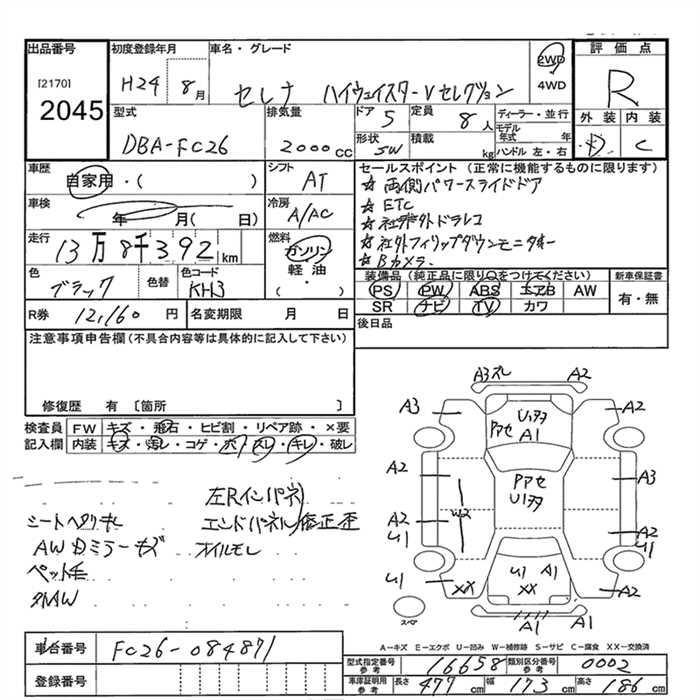 出品番号 初度登録年月 車名・グレード 評価点
[2170]
2045
H24 8月 セレナ ハイウェイスターVセレクション 2WD
4WD
R
外装 内装
D C
型式 排気量 ドア 定員 ディーラー・並行
DBA-FC26 2000cc 5 8人 モデル年式 年
形状 積載 ハンドル 左・右
5W kg
車歴 シフト セールスポイント(正常に機能するものに限ります)
自家用・( ) AT
☆両側パワースライドドア
☆ETC
☆社外ドラレコ
☆社外フィリップダウンモニター
☆Bカメラ
車検 冷房
年 月( 日) A/AC
走行 燃料
13万8千392km ガソリン
軽油
( )
色 色替 色コード
ブラック KH3
装備品(純正品に限り○をつけてください) 新車保証書
PS PW ABS エアB AW 有・無
SR ナビ TV カワ
R券 12,160円 名変期限 月 日 後日品
注意事項申告欄(不具合内容等は具体的に記入して下さい)
修復歴 有 〔箇所 〕
検査員 FW キズ・飛石・ヒビ割・リペア跡・×要
記入欄 内装 キズ・汚レ・コゲ・穴・スレ・キレ・破レ
左Rインパネ
シートヘタリ キレ エンドパネル 修正歪
AWミラーキズ オイルモレ
ペット毛
外AW
A3ズレ A2
A3 A2
U1刃
アセ A1
A2 アセ A3
U1刃
W2
A2 A2
U1 U1
U1 U1 A1
XX XX
スペア A1 A1
A-キズ E-エクボ U-凹み W-補修跡 S-サビ C-腐食 XX-交換済
車台番号 FC26-084871
登録番号
型式指定番号 参考 16658 類別区分番号 参考 0002
車庫証明用 参考 長さ 477cm 幅 173cm 高さ 186cm